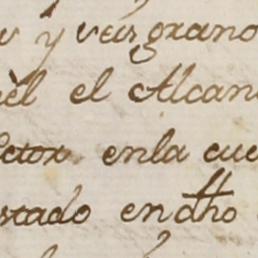 y veis grano
el el Alcan
ctor enla cue
stado en dho